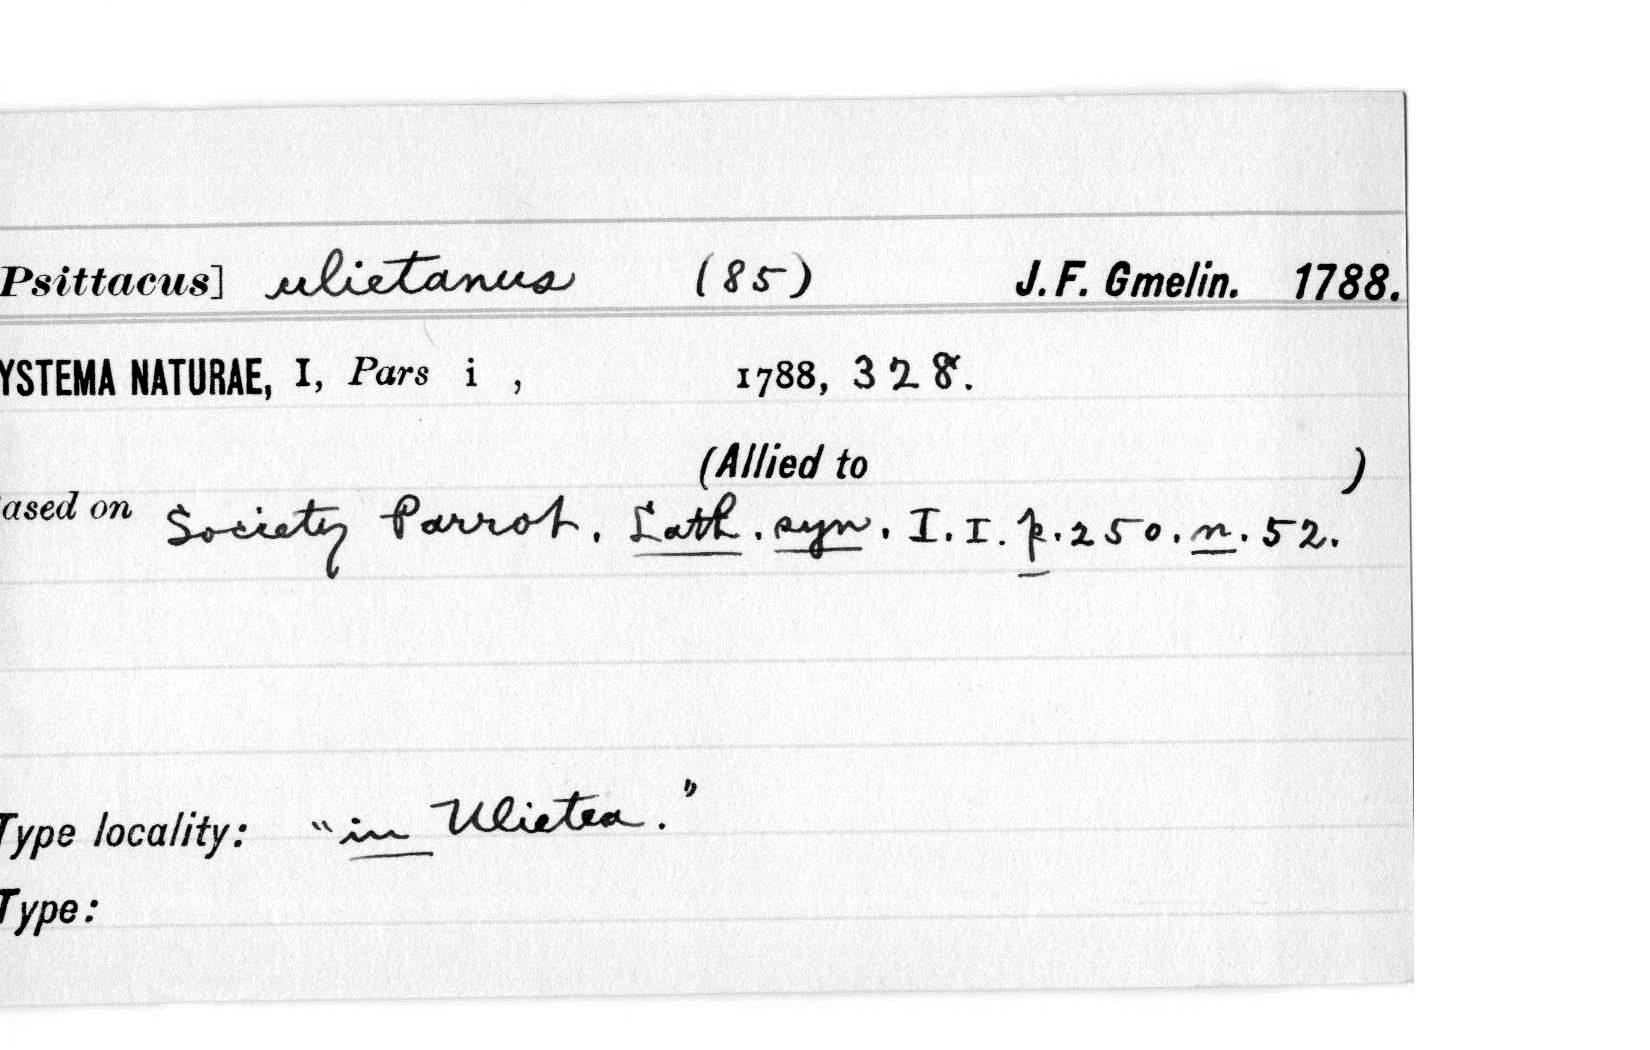 Psittacus] ulietanus (85) J. F. Gmelin. 1788.
YSTEMA NATURAE, I, Pars i , 1788, 328.
(Allied to )
ased on Society Parrot. Lath. syn. I. I. p. 250. n. 52.
Type locality: "in Ulietea."
Type: